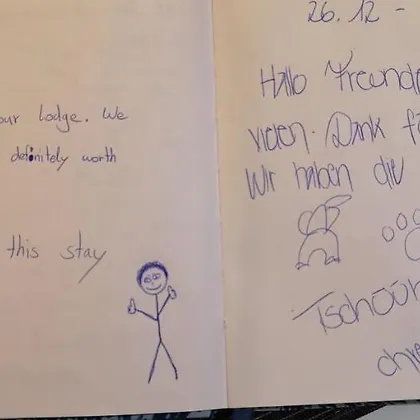 our lodge. We
definitely worth
this stay
26.12 -
Hallo Freunde
vielen Dank fü
Wir haben die
Tschöö